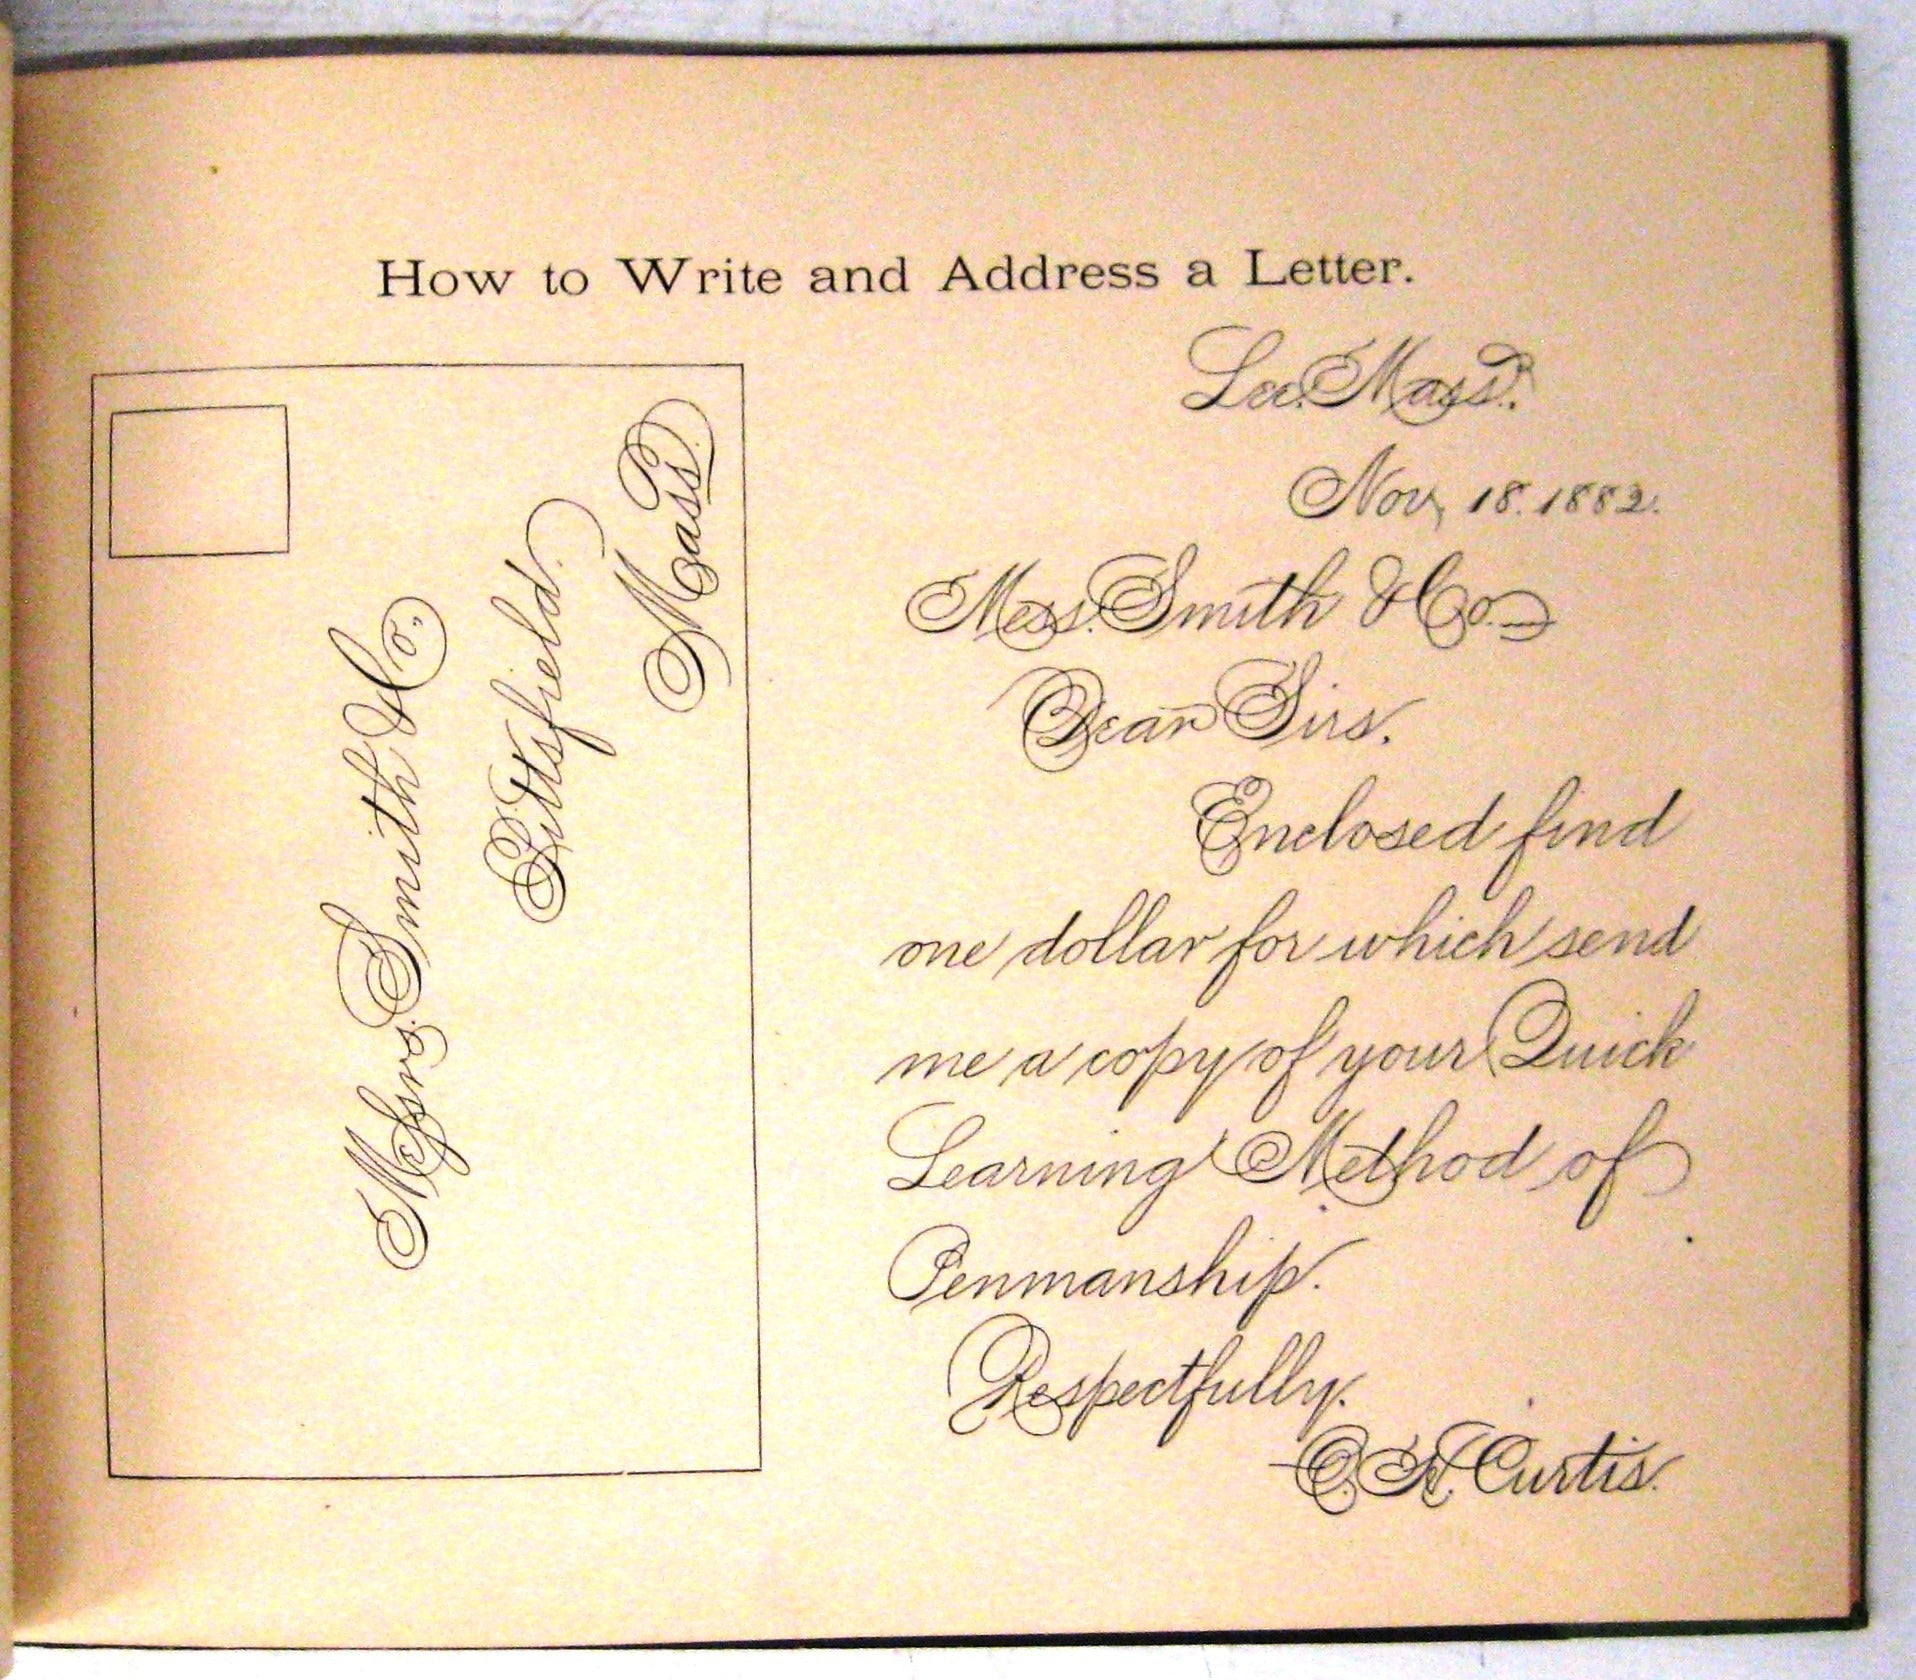 How to Write and Address a Letter.
Messrs. Smith & Co.
Pittsfield.
Mass.
Lee. Mass.
Nov, 18. 1882.
Mess. Smith & Co.
Dear Sirs.
Enclosed find
one dollar for which send
me a copy of your Quick
Learning Method of
Penmanship.
Respectfully.
Curtis.